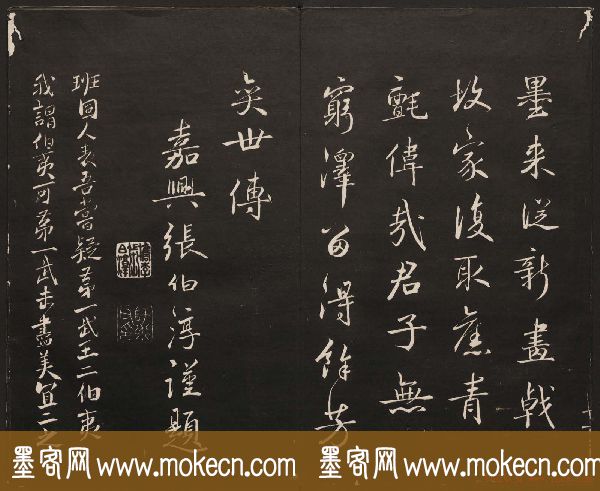 墨来從新畫戟
故家復取舊青
氈偉哉君子無
窮澤留得餘芳
奕世傳
嘉興張伯淳謹題
班固人表吾嘗疑第一武王二伯夷
我謂伯夷可第一武未盡美宜二之
墨客网 www.mokecn.com 墨客网 www.mokecn.com